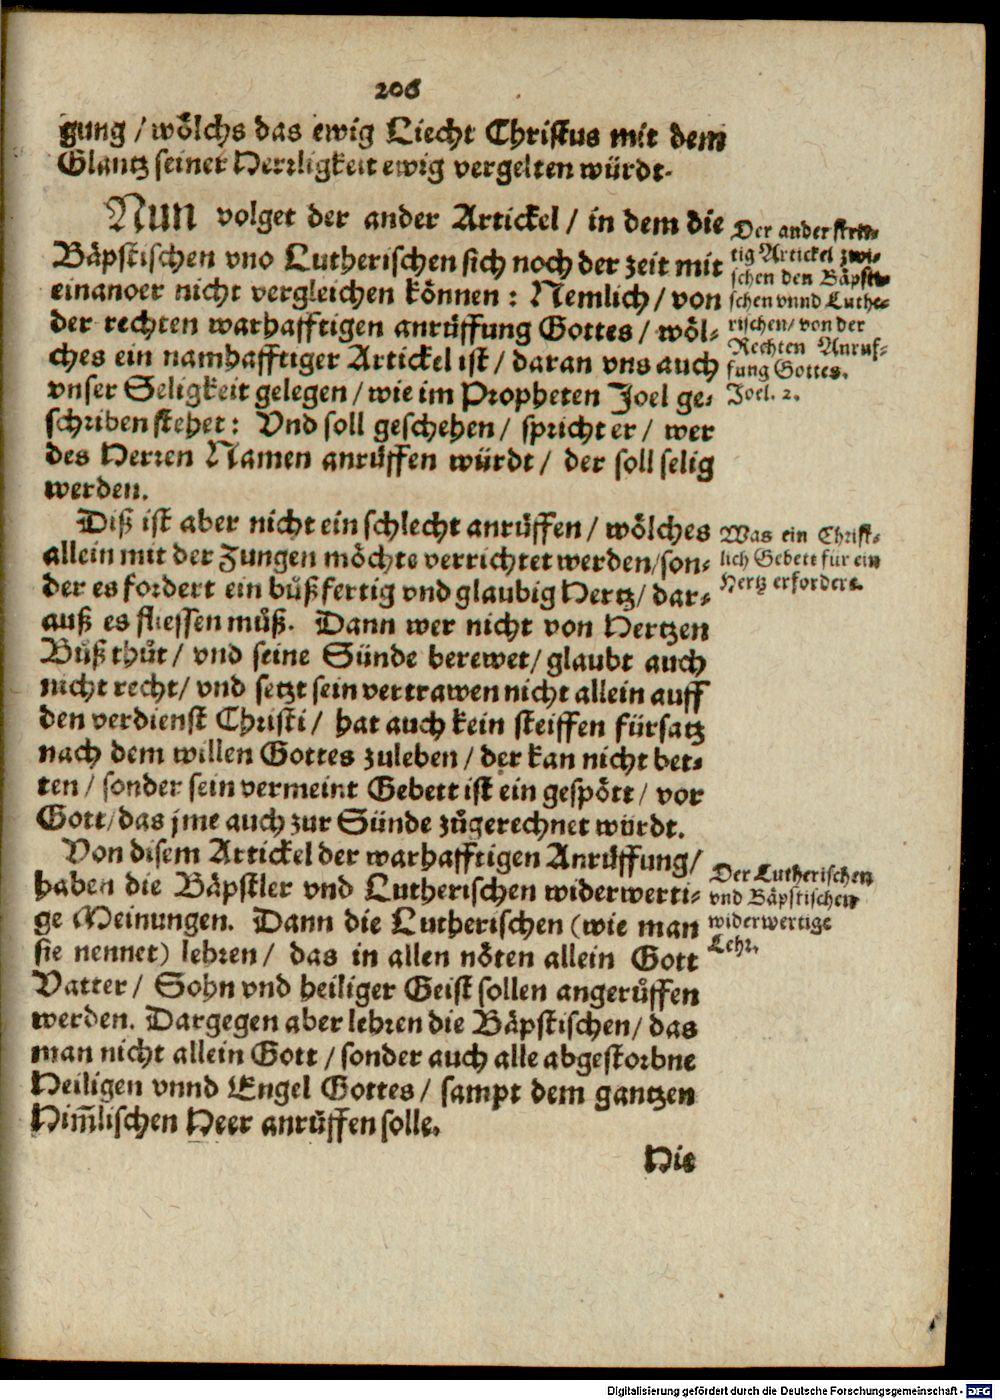 206
gung / wölchs das ewig Liecht Christus mit dem
Glantz seiner Herrligkeit ewig vergelten würdt.
NUn volget der ander Artickel / in dem die
Bäpstischen vnd Lutherischen sich noch der zeit mit
einander nicht vergleichen können : Nemlich / von
der rechten warhafftigen anrůffung Gottes / wöl-
ches ein namhafftiger Artickel ist / daran vns auch
vnser Seligkeit gelegen / wie im Propheten Joel ge-
schriben stehet : Vnd soll geschehen / spricht er / wer
des Herren Namen anrůffen würdt / der soll selig
werden.
Der ander strit-
tig Artickel zwi-
schen den Bäpsti-
schen vnnd Luthe-
rischen / von der
Rechten Anruf-
fung Gottes.
Joel. 2.
Diß ist aber nicht ein schlecht anrůffen / wölches
allein mit der Zungen möchte verrichtet werden / son-
der es fordert ein bůßfertig vnd glaubig Hertz / dar-
auß es fliessen můß. Dann wer nicht von Hertzen
Bůß thůt / vnd seine Sünde berewet / glaubt auch
nicht recht / vnd setzt sein vertrawen nicht allein auff
den verdienst Christi / hat auch kein steiffen fürsatz
nach dem willen Gottes zuleben / der kan nicht bet-
ten / sonder sein vermeint Gebett ist ein gespött / vor
Gott / das jme auch zur Sünde zůgerechnet würdt.
Was ein Christ-
lich Gebett für ein
Hertz erfordere.
Von disem Artickel der warhafftigen Anrůffung /
haben die Bäpstler vnd Lutherischen widerwerti-
ge Meinungen. Dann die Lutherischen (wie man
sie nennet) lehren / das in allen nöten allein Gott
Vatter / Sohn vnd heiliger Geist sollen angerůffen
werden. Dargegen aber lehren die Bäpstischen / das
man nicht allein Gott / sonder auch alle abgestorbne
Heiligen vnnd Engel Gottes / sampt dem gantzen
Him̃lischen Heer anrůffen solle.
Der Lutherischen
vnd Bäpstischen
widerwertige
Lehr.
Die
Digitalisierung gefördert durch die Deutsche Forschungsgemeinschaft - DFG